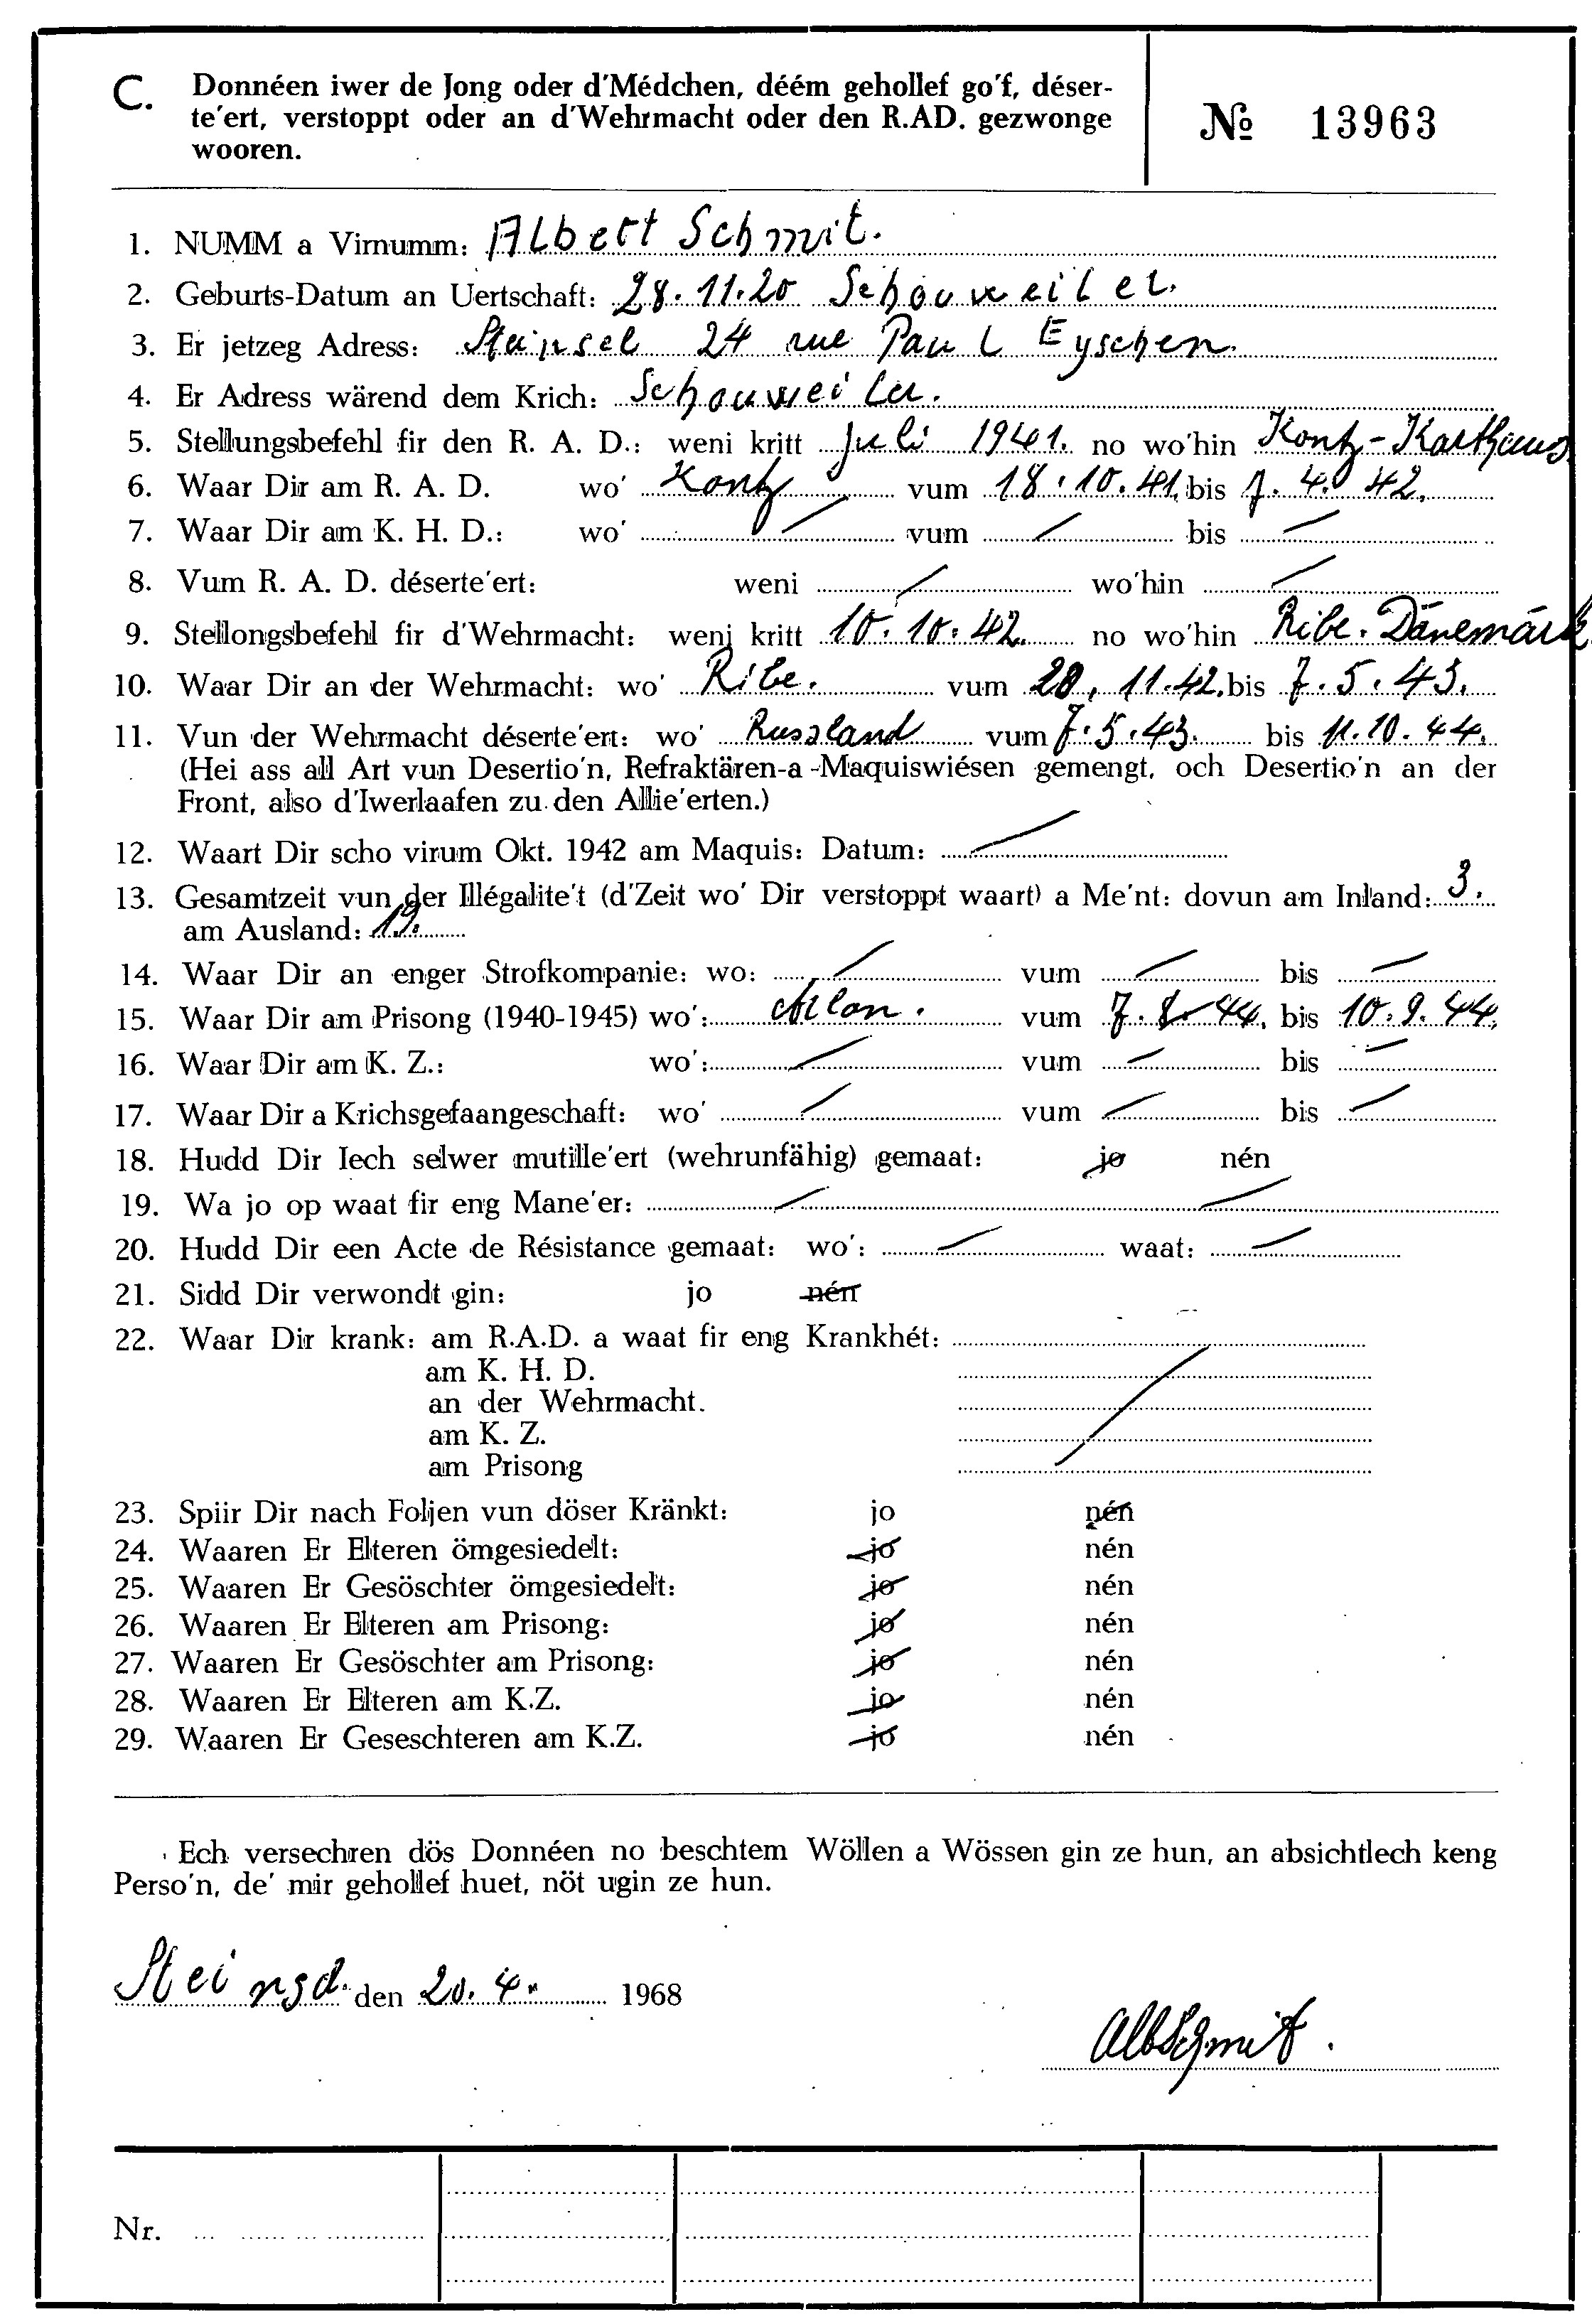 C. Donnéen iwer de Jong oder d'Médchen, déém gehollef go'f, déser-
te'ert, verstoppt oder an d'Wehrmacht oder den R.AD. gezwonge
wooren.
№ 13963
1. NUMM a Virnumm: Albert Schmit.
2. Geburts-Datum an Uertschaft: 28.11.20 Schouweiler.
3. Er jetzeg Adress: Steinsel 24 rue Paul Eyschen.
4. Er Adress wärend dem Krich: Schouweiler.
5. Stellungsbefehl fir den R. A. D.: weni kritt Juli 1941. no wo'hin Kontz-Karthaus.
6. Waar Dir am R. A. D. wo' Kontz vum 18.10.41. bis 7.4.42.
7. Waar Dir am K. H. D.: wo' / vum / bis /
8. Vum R. A. D. déserte'ert: weni / wo'hin /
9. Stellongsbefehl fir d'Wehrmacht: weni kritt 10.10.42. no wo'hin Ribe. Dänemark.
10. Waar Dir an der Wehrmacht: wo' Ribe. vum 20.11.42. bis 7.5.43.
11. Vun der Wehrmacht déserte'ert: wo' Russland vum 7.5.43. bis 11.10.44.
(Hei ass all Art vun Desertio'n, Refraktären-a-Maquiswiésen gemengt, och Desertio'n an der
Front, also d'Iwerlaafen zu den Allie'erten.)
12. Waart Dir scho virum Okt. 1942 am Maquis: Datum: /
13. Gesamtzeit vun der Illégalite't (d'Zeit wo' Dir verstoppt waart) a Me'nt: dovun am Inland: 3.
am Ausland: 19.
14. Waar Dir an enger Strofkompanie: wo: / vum / bis /
15. Waar Dir am Prisong (1940-1945) wo': Arlon. vum 7.8.44. bis 10.9.44.
16. Waar Dir am K. Z.: wo': / vum / bis /
17. Waar Dir a Krichsgefaangeschaft: wo' / vum / bis /
18. Hudd Dir Iech selwer mutille'ert (wehrunfähig) gemaat: jo nén
19. Wa jo op waat fir eng Mane'er: / /
20. Hudd Dir een Acte de Résistance gemaat: wo': / waat: /
21. Sidd Dir verwondt gin: jo nén
22. Waar Dir krank: am R.A.D. a waat fir eng Krankhét:
am K. H. D.
an der Wehrmacht.
am K. Z.
am Prisong
23. Spiir Dir nach Foljen vun döser Kränkt: jo nén
24. Waaren Er Elteren ömgesiedelt: jo nén
25. Waaren Er Gesöschter ömgesiedelt: jo nén
26. Waaren Er Elteren am Prisong: jo nén
27. Waaren Er Gesöschter am Prisong: jo nén
28. Waaren Er Elteren am K.Z. jo nén
29. Waaren Er Geseschteren am K.Z. jo nén
Ech versechren dös Donnéen no beschtem Wöllen a Wössen gin ze hun, an absichtlech keng
Perso'n, de' mir gehollef huet, nöt ugin ze hun.
Steinsel. den 20.4. 1968
AlbSchmit.
Nr.